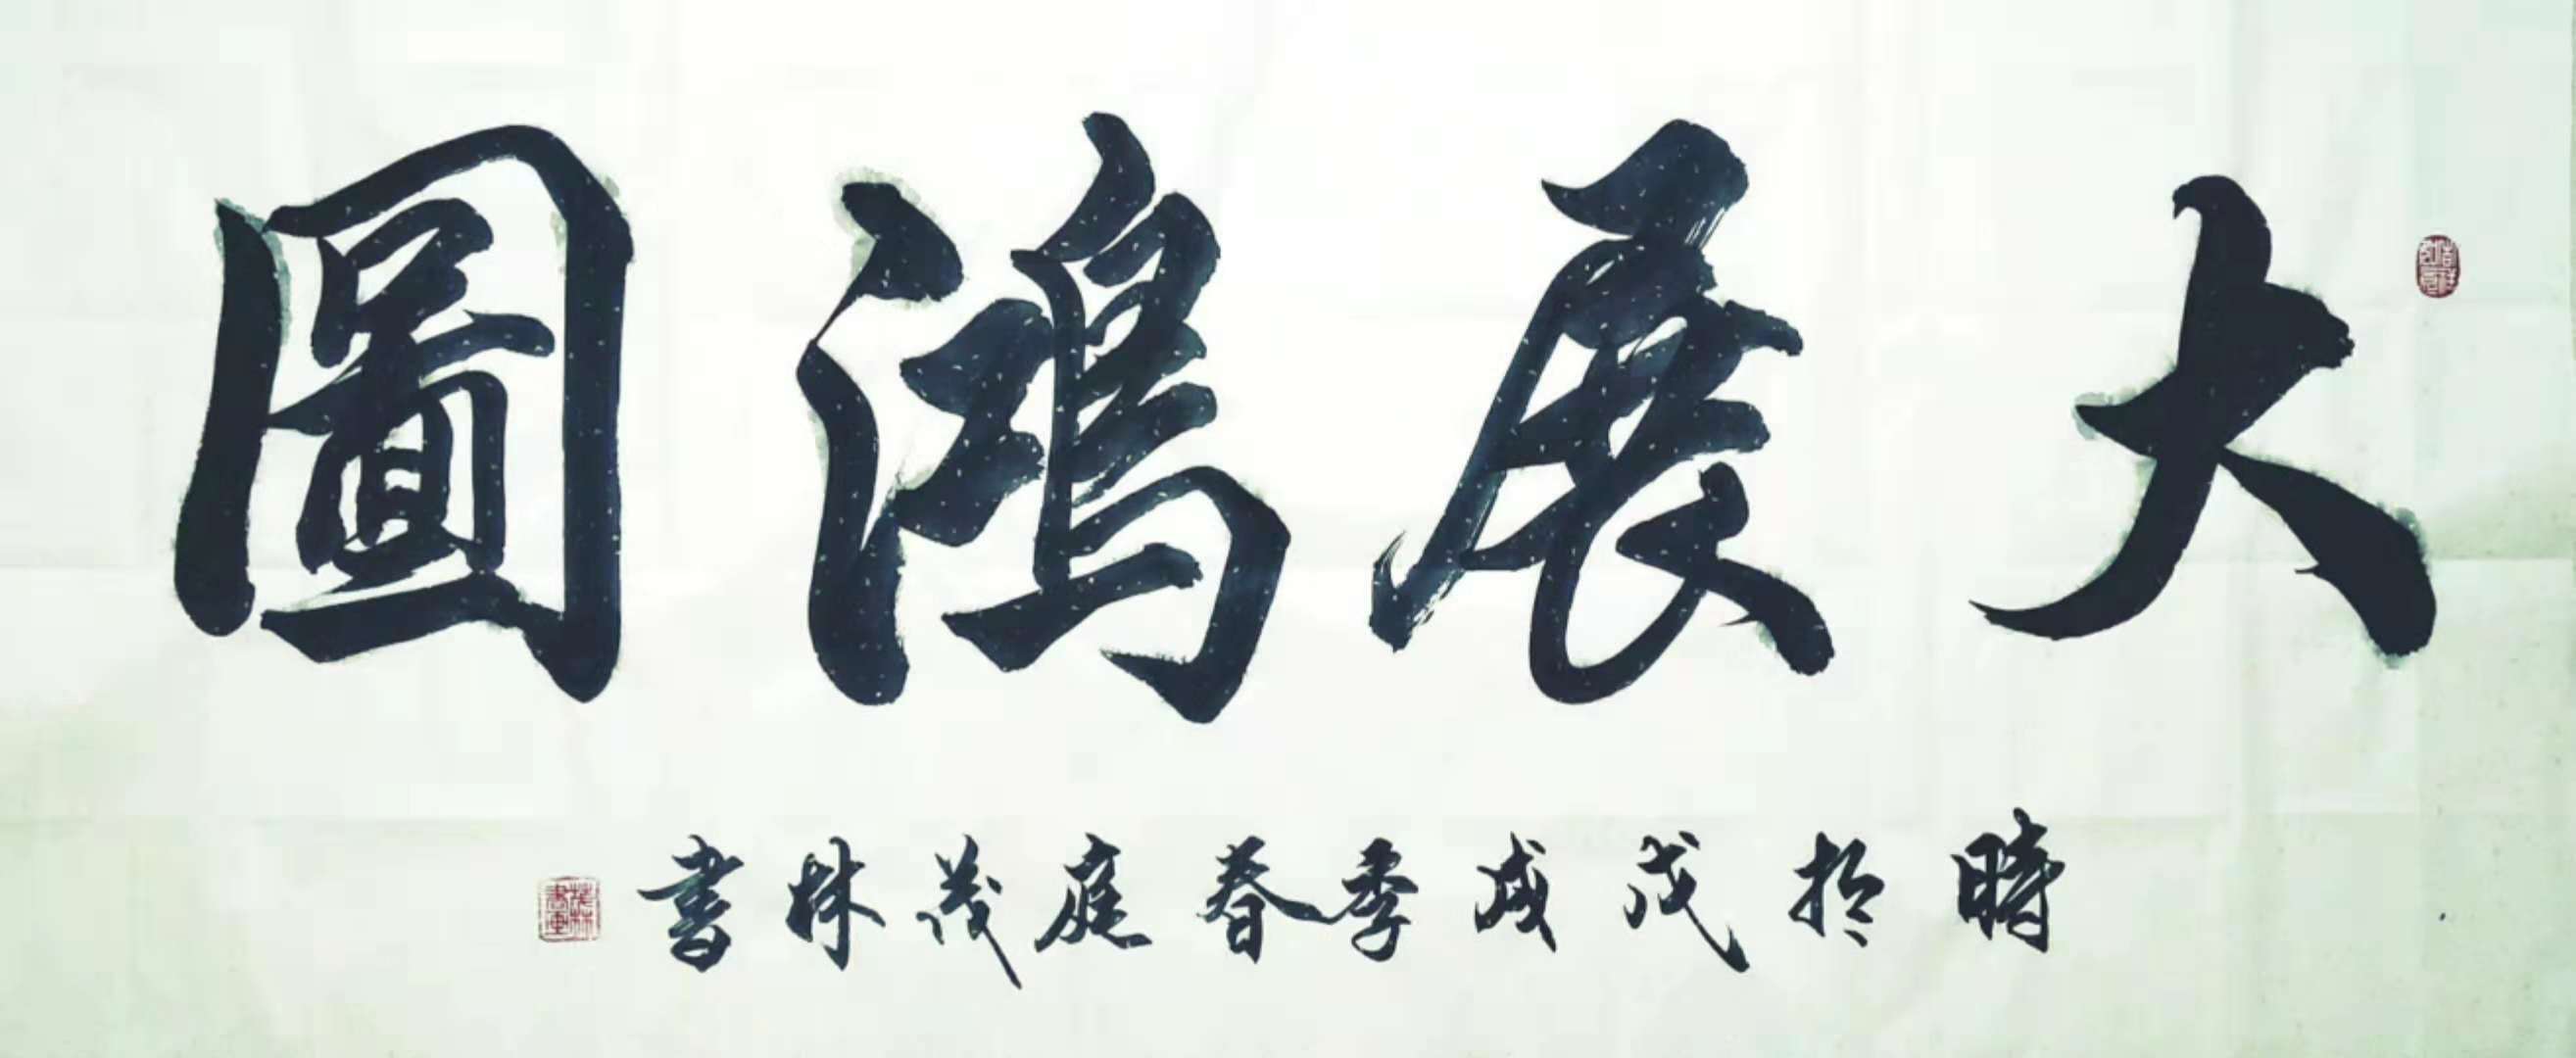 大展鴻圖
時於戊戌季春庭茂林書